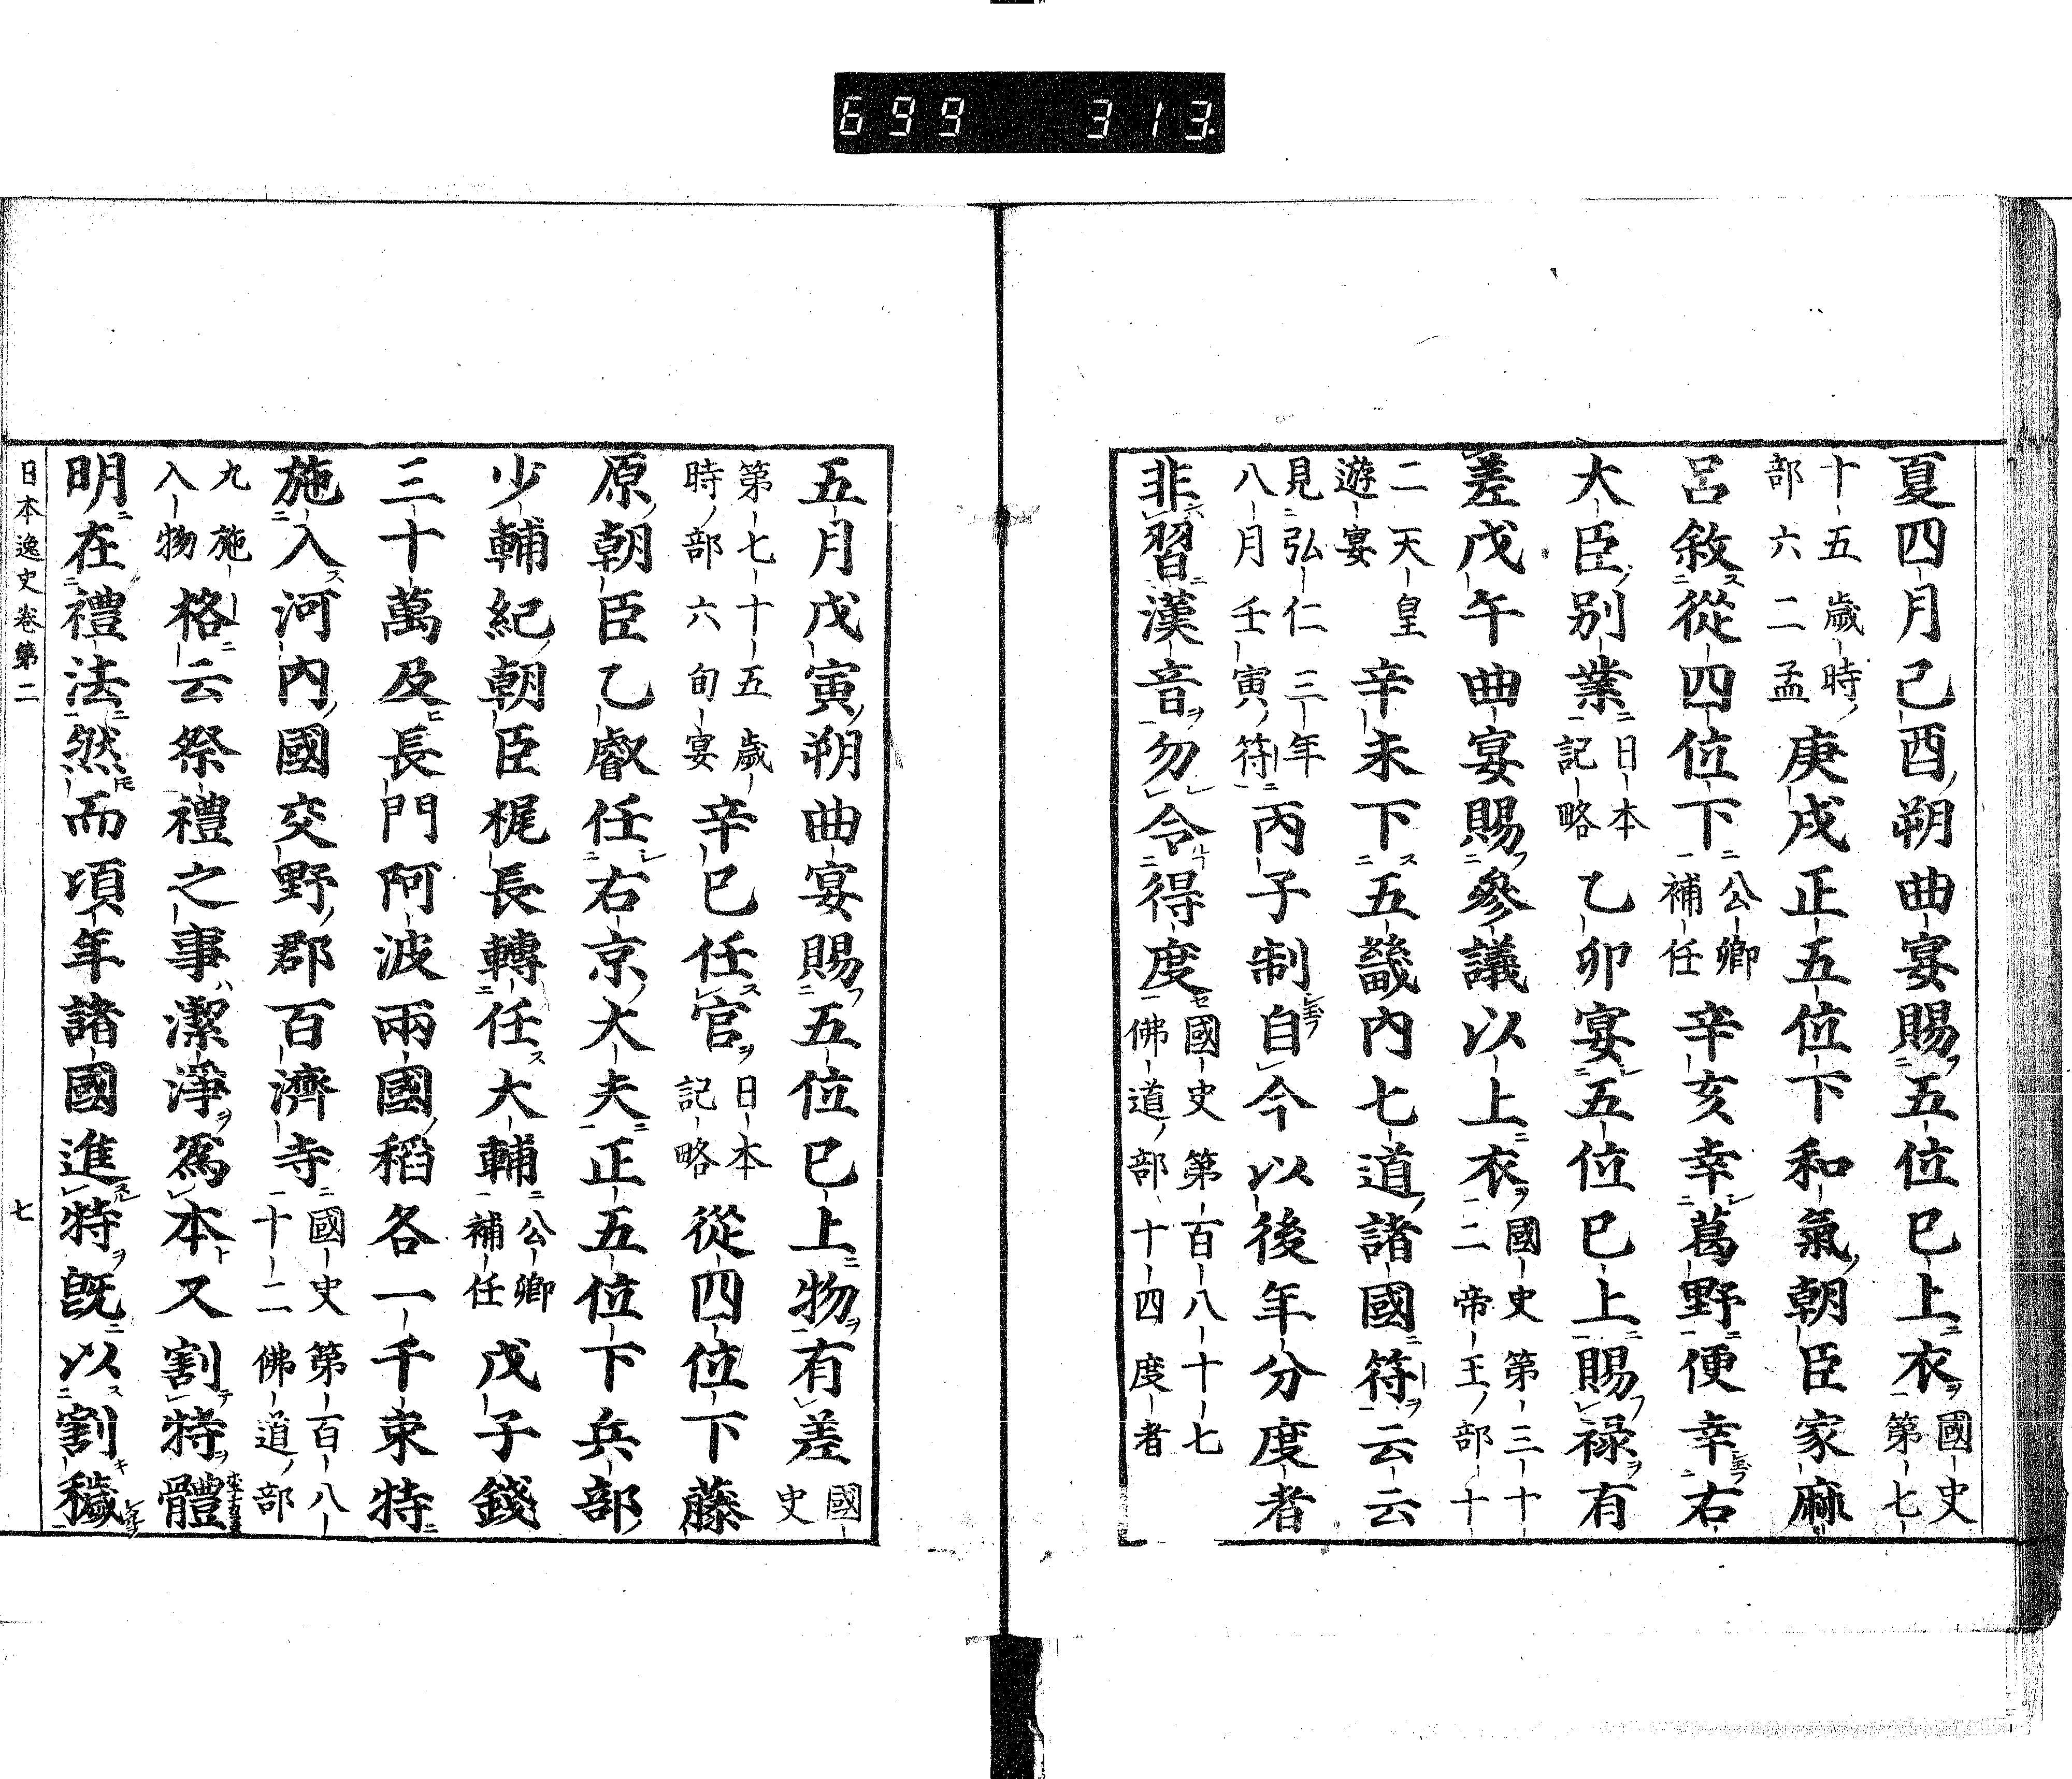 699 313
夏四月己酉朔曲宴賜五位已上衣國史第七
十五歲時部六二孟庚戌正五位下和氣朝臣家麻
呂敘從四位下公卿補任辛亥幸葛野便幸右
大臣別業日本記略乙卯宴五位已上賜祿有
差戊午曲宴賜參議以上衣國史第三十二帝王部十
二天皇遊宴辛未下五畿內七道諸國符云云
見弘仁三年八月壬寅符丙子制自今以後年分度者
非習漢音勿令得度國史第百八十七佛道部十四度者
五月戊寅朔曲宴賜五位已上物有差國史
第七十五歲時部六旬宴辛巳任官日本記略從四位下藤
原朝臣乙叡任右京大夫正五位下兵部
少輔紀朝臣梶長轉任大輔公卿補任戊子錢
三十萬及長門阿波兩國稻各一千束特
施入河內國交野郡百濟寺國史第百八十二佛道部
九施入物格云祭禮之事潔淨爲本又割特體
明在禮法然而頃年諸國進特既以割穢
日本逸史卷第二 七